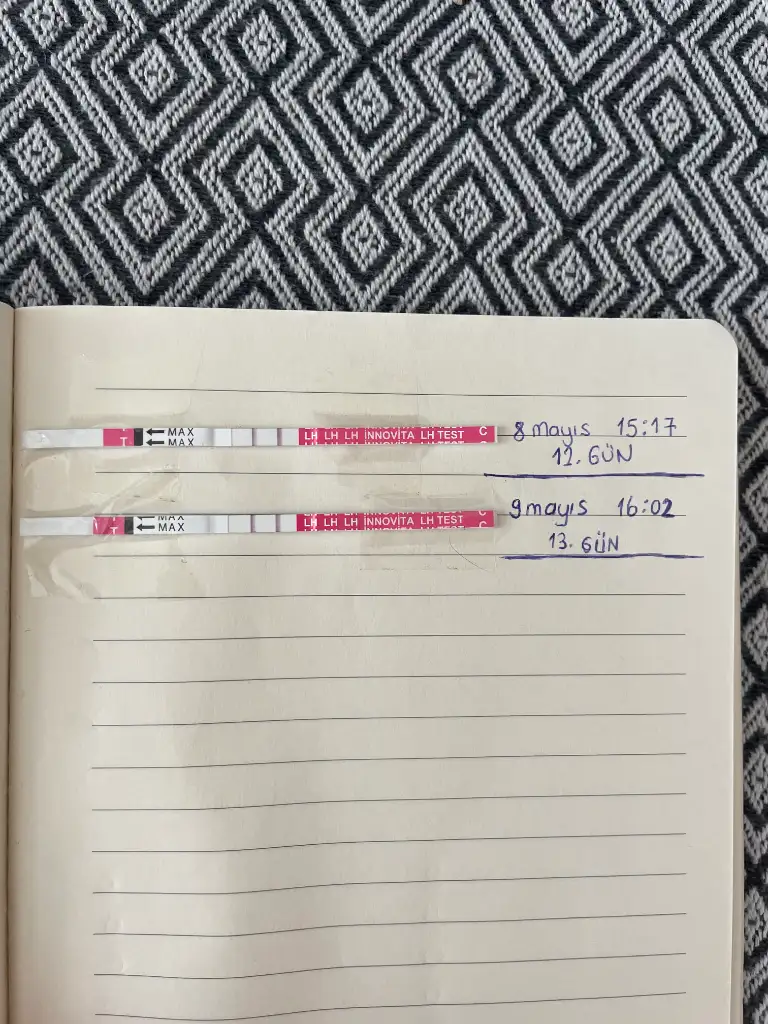 T MAX MAX LH LH LH INNOVITA LH TEST C 8 mayıs 15:17
12. GÜN
T MAX MAX LH LH LH INNOVITA LH TEST C 9 mayıs 16:02
13. GÜN